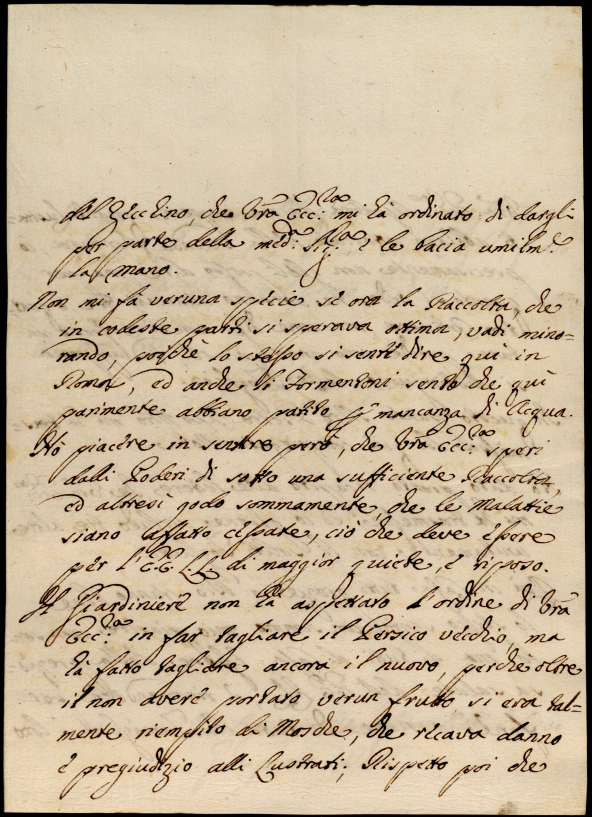 del Zecchino, che Vrã Ecc:za mi hà ordinato di dargli
per parte della med:ma Sig:ra, e le bacia umilm:te
la mano.
Non mi fà veruna spècie se ora la Raccolta, che
in codeste parti si sperava ottima, vadi mino=
rando, poiche lo stesso si sentè dire quì in
Roma, ed anche li Formentoni sento che quì
parimente abbiano patito p mancanza di Acqua.
Hò piacere in sentire però, che Vrã Ecc:za speri
dalli Poderi di sotto una sufficiente Raccolta,
ed altresì godo sommamente, che le Malattie
siano affatto cessate, ciò che deve èssere
per l'E.E. L.L. di maggior quiete, e riposo.
Il Giardiniere non hà aspettato l'ordine di Vrã
Ecc:za in far tagliare il Persico vecchio, ma
hà fatto tagliare ancora il nuovo, perche oltre
il non avere portato verun frutto si era tal=
mente riempito di Mosche, che recava danno
e pregiudizio alli Lustrati; Rispetto poi che